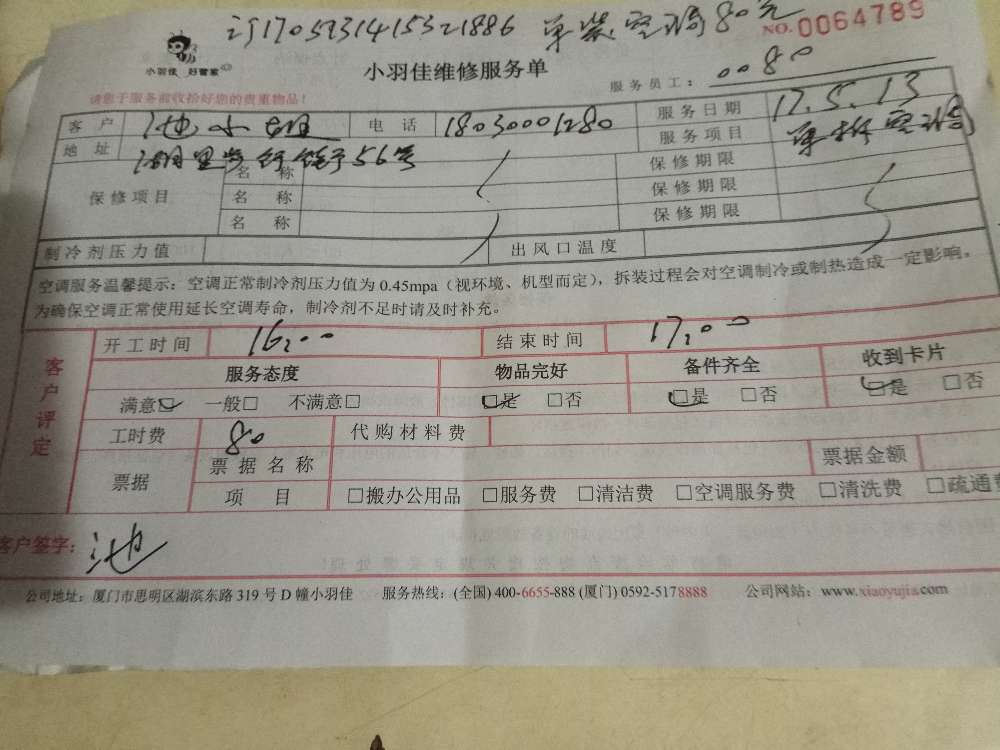 订1705231415321886 单装空调80元
NO.0064789
小羽佳 好管家
小羽佳维修服务单
服务员工: 0080
请您于服务前收拾好您的贵重物品!
客户 池小姐 电话 18030001280 服务日期 17.5.13
地址 56号 服务项目 单拆空调
保修项目 名称 保修期限
名称 保修期限
名称 保修期限
制冷剂压力值 出风口温度
空调服务温馨提示:空调正常制冷剂压力值为 0.45mpa(视环境、机型而定),拆装过程会对空调制冷或制热造成一定影响。
为确保空调正常使用延长空调寿命,制冷剂不足时请及时补充。
客户评定
开工时间 16:00 结束时间 17:00
服务态度 物品完好 备件齐全 收到卡片
满意□ 一般□ 不满意□ □是 □否 □是 □否 □是 □否
工时费 80 代购材料费
票据 票据名称 票据金额
项目 □搬办公用品 □服务费 □清洁费 □空调服务费 □清洗费 □疏通费
客户签字: 池
公司地址:厦门市思明区湖滨东路 319 号 D 幢小羽佳 服务热线:(全国) 400-6655-888 (厦门) 0592-5178888 公司网站:www.xiaoyujia.com